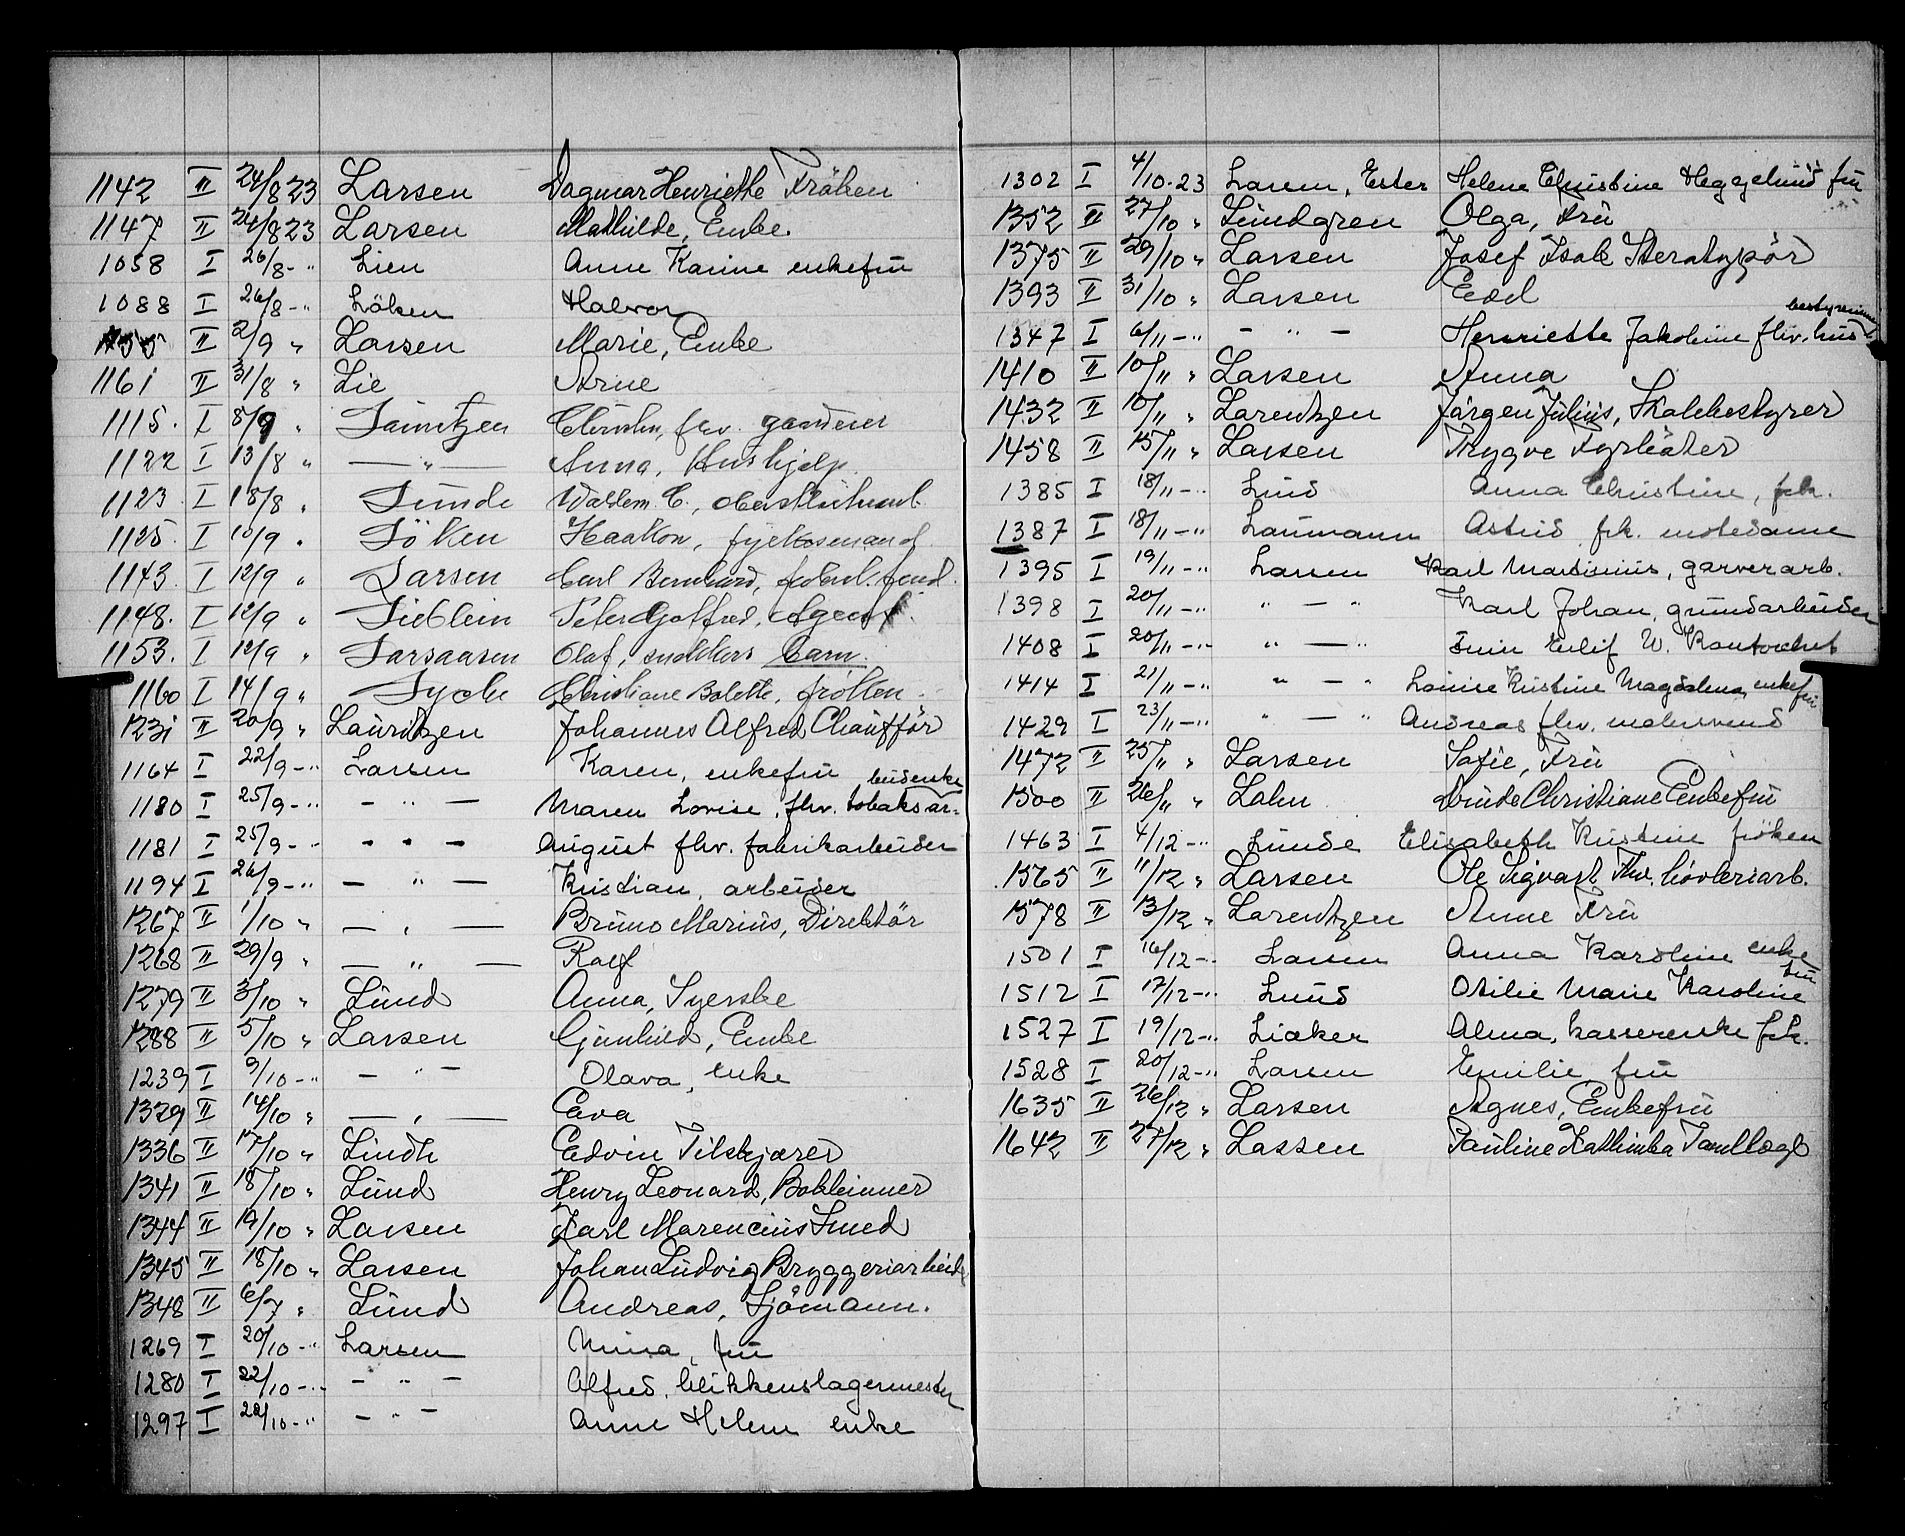 1142 II 24/8 23 Larsen Dagmar Henriette Fröken
1147 II 24/8 23 Larsen Mathilde, Enke
1058 I 26/8 - " Lien Anne Karine enkefru
1088 I 26/8 - " Löken Halvor
II 2/9 " Larsen Marie, Enke
1161 II 31/8 " Lie Arne
1115. I 8/9 " Lauritzen fhv. gartner
1122 I 13/8 " — " — Anna, Hushjelp.
1123 I 18/8 " Lunde C.,
1125. I 10/9 " Löken Haakon,
1143. I 12/9 " Larsen Carl Bernhard,
1148. I 12/9 " Lieblein Peter Gotfred, Agent.
1153. I 12/9 " Olaf, snekkers barn.
1160 I 14/9 " Lyche Christiane Bolette, fröken.
1231 II 20/9 " Lauritzen Johannes Alfred Chaufför
1164 I 22/9 - " Larsen Karen, enkefru
1180 I 25/9 - " — " — Maren Lovise, fhv. tobaksar-
beiderske
1181 I 25/9 - " — " — August fhv. fabrikarbeider
1194 I 26/9 - " — " — Kristian, arbeider
1267 II 1/10 " — " — Bruno Marius, Direktör
1268 II 29/9 " — " — Rolf
1279 II 3/10 " Lund Anna, Syerske
1288 II 5/10 " Larsen Gunhild, Enke
1239 I 9/10 - " — " — Olava, enke
1329 II 14/10 " — " — Eva
1336 II 17/10 " Lindh Edvin Tilskjærer
1341 II 18/10 " Lund Henry Leonard, Bokbinder
1344 II 19/10 " Larsen Karl Marencius Smed
1345 II 18/10 " Larsen Johan Ludvig Bryggeriarbeid
1348 II 6/7 " Lund Andreas, Sjömann.
1269 I 20/10 - " Larsen Mina, fru
1280 I 22/10 - " — " — Alfred, blikkenslagermester
1297 I 22/10 - " — " — Anne Helene enke
1302 I 4/10 - 23 Larsen, Ester Helene Christine Heggelund fru
1352 II 27/10 " Lundgren Olga, Fru
1375 II 29/10 " Larsen Josef Isak Sterotypör
1393 II 31/10 " Larsen
1347 I 6/11 - " — " — Henriette Jakobine fhv. hus-
bestyrerinne
1410 II 10/11 " Larsen Anna
1432 II 10/11 " Larentzen Jörgen Julius, Skolebestyrer
1458 II 15/11 " Larsen Trygve Fyrböter
1385 I 18/11 - " Lund Anna Christine, frk.
1387 I 18/11 - " Laumann Astrid frk. motedame
1395 I 19/11 - " Larsen Karl Martinius, garverarb.
1398 I 20/11 - " " — " Karl Johan, grundarbeider
1408 I 20/11 - " " — " W. Kontorchef
1414 I 21/11 - " " — " Louise Kristine Magdalena, enkefru
1429 I 23/11 - " " — " Andreas fhv. malersvend
1472 II 25/11 " Larsen Sofie, Fru
1500 II 26/11 " Lahn Christiane Enkefru
1463 I 4/12 - " Lunde Elisabeth Kristine fröken
1565 II 11/12 " Larsen Ole Sigvart Fhv. hövleriarb.
1578 II 13/12 " Larentzen Anne Fru
1501 I 16/12 - " Larsen Anna Karoline enke
fru
1512 I 17/12 - " Lund Otilie Marie Karoline
1527 I 19/12 - " Liaker Alma, kassererske frk.
1528 I 20/12 - " Larsen Emilie fru
1635 II 26/12 " Larsen Agnes, Enkefru
1642 II 27/12 " Lassen Pauline Kathinka Tandlæge